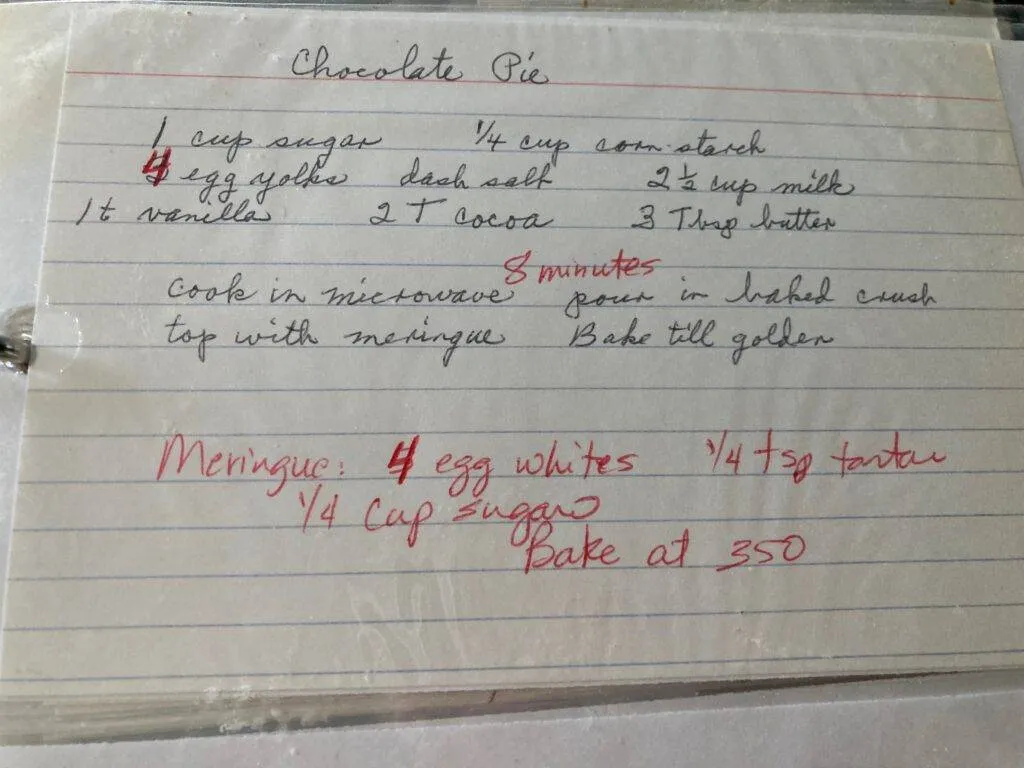 Chocolate Pie
1 cup sugar 1/4 cup corn starch
4 egg yolks dash salt 2 1/2 cup milk
1 t vanilla 2 T cocoa 3 Tbsp butter
8 minutes
cook in microwave pour in baked crush
top with meringue Bake till golden
Meringue: 4 egg whites 1/4 tsp tartar
1/4 cup sugar
Bake at 350